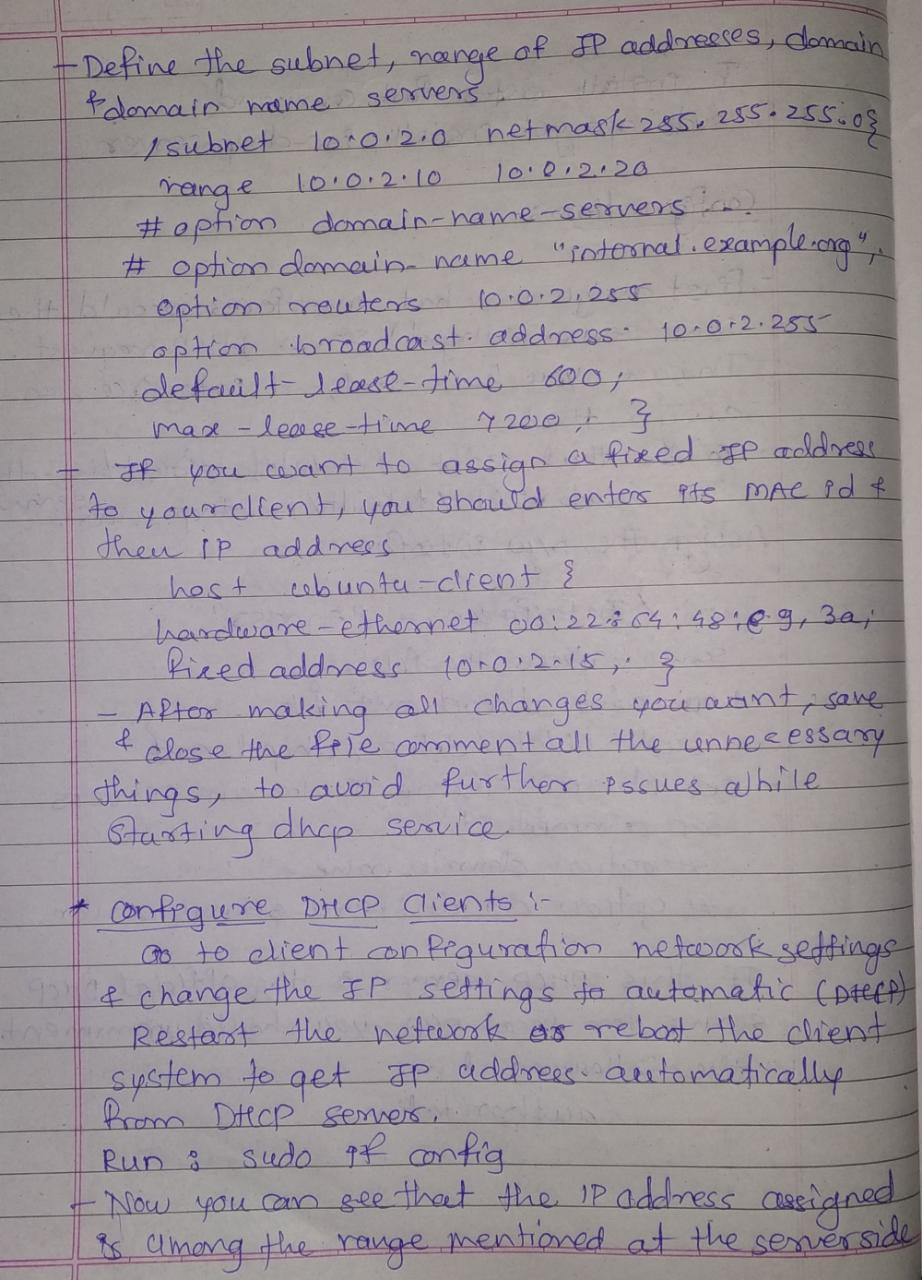 - Define the subnet, range of IP addresses, domain
& domain name servers.
subnet 10.0.2.0 netmask 255.255.255.0{
range 10.0.2.10 10.0.2.20
# option domain-name-servers
# option domain-name "internal.example.org",
option routers 10.0.2.255
option broadcast.address. 10.0.2.255
default-lease-time 600;
max-lease-time 7200; }
- If you want to assign a fixed IP address
to your client, you should enters its MAC id &
then IP address
host ubuntu-client {
hardware-ethernet 00:22:64:48:e.g, 3a;
fixed address 10.0.2.15; }
- After making all changes you want, save
& close the file comment all the unnecessary
things, to avoid further issues while
starting dhcp service.
* Configure DHCP Clients :-
Go to client configuration network settings
& change the IP settings to automatic (DHCP)
Restart the network or reboot the client
system to get IP address automatically
from DHCP server.
Run : sudo if config
- Now you can see that the IP address assigned
is among the range mentioned at the server side